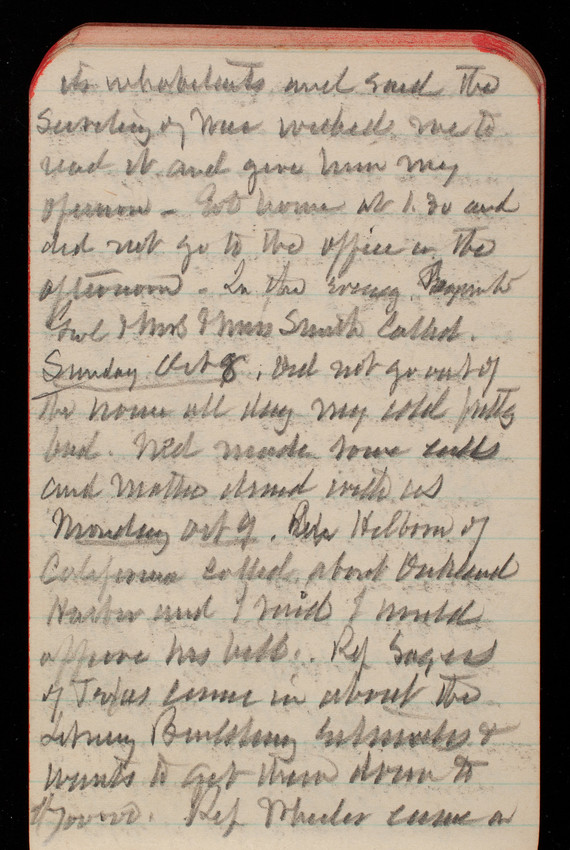 its inhabitants and said the
Secretary of War wished me to
read it and give him my
opinion - Got home at 1.30 and
did not go to the office in the
afternoon - In the evening
Genl & Mrs & Miss Smith called.
Sunday Oct 8. Did not go out of
the house all day my cold pretty
bad. Ned made some calls
and dined with us
Monday Oct 9. Rep Hilborn of
California called about Oakland
Harbor and I said I would
approve his bill. Rep Sayers
of Texas came in about the
Library Building Estimates &
wants to get them down to
Rep Wheeler came in